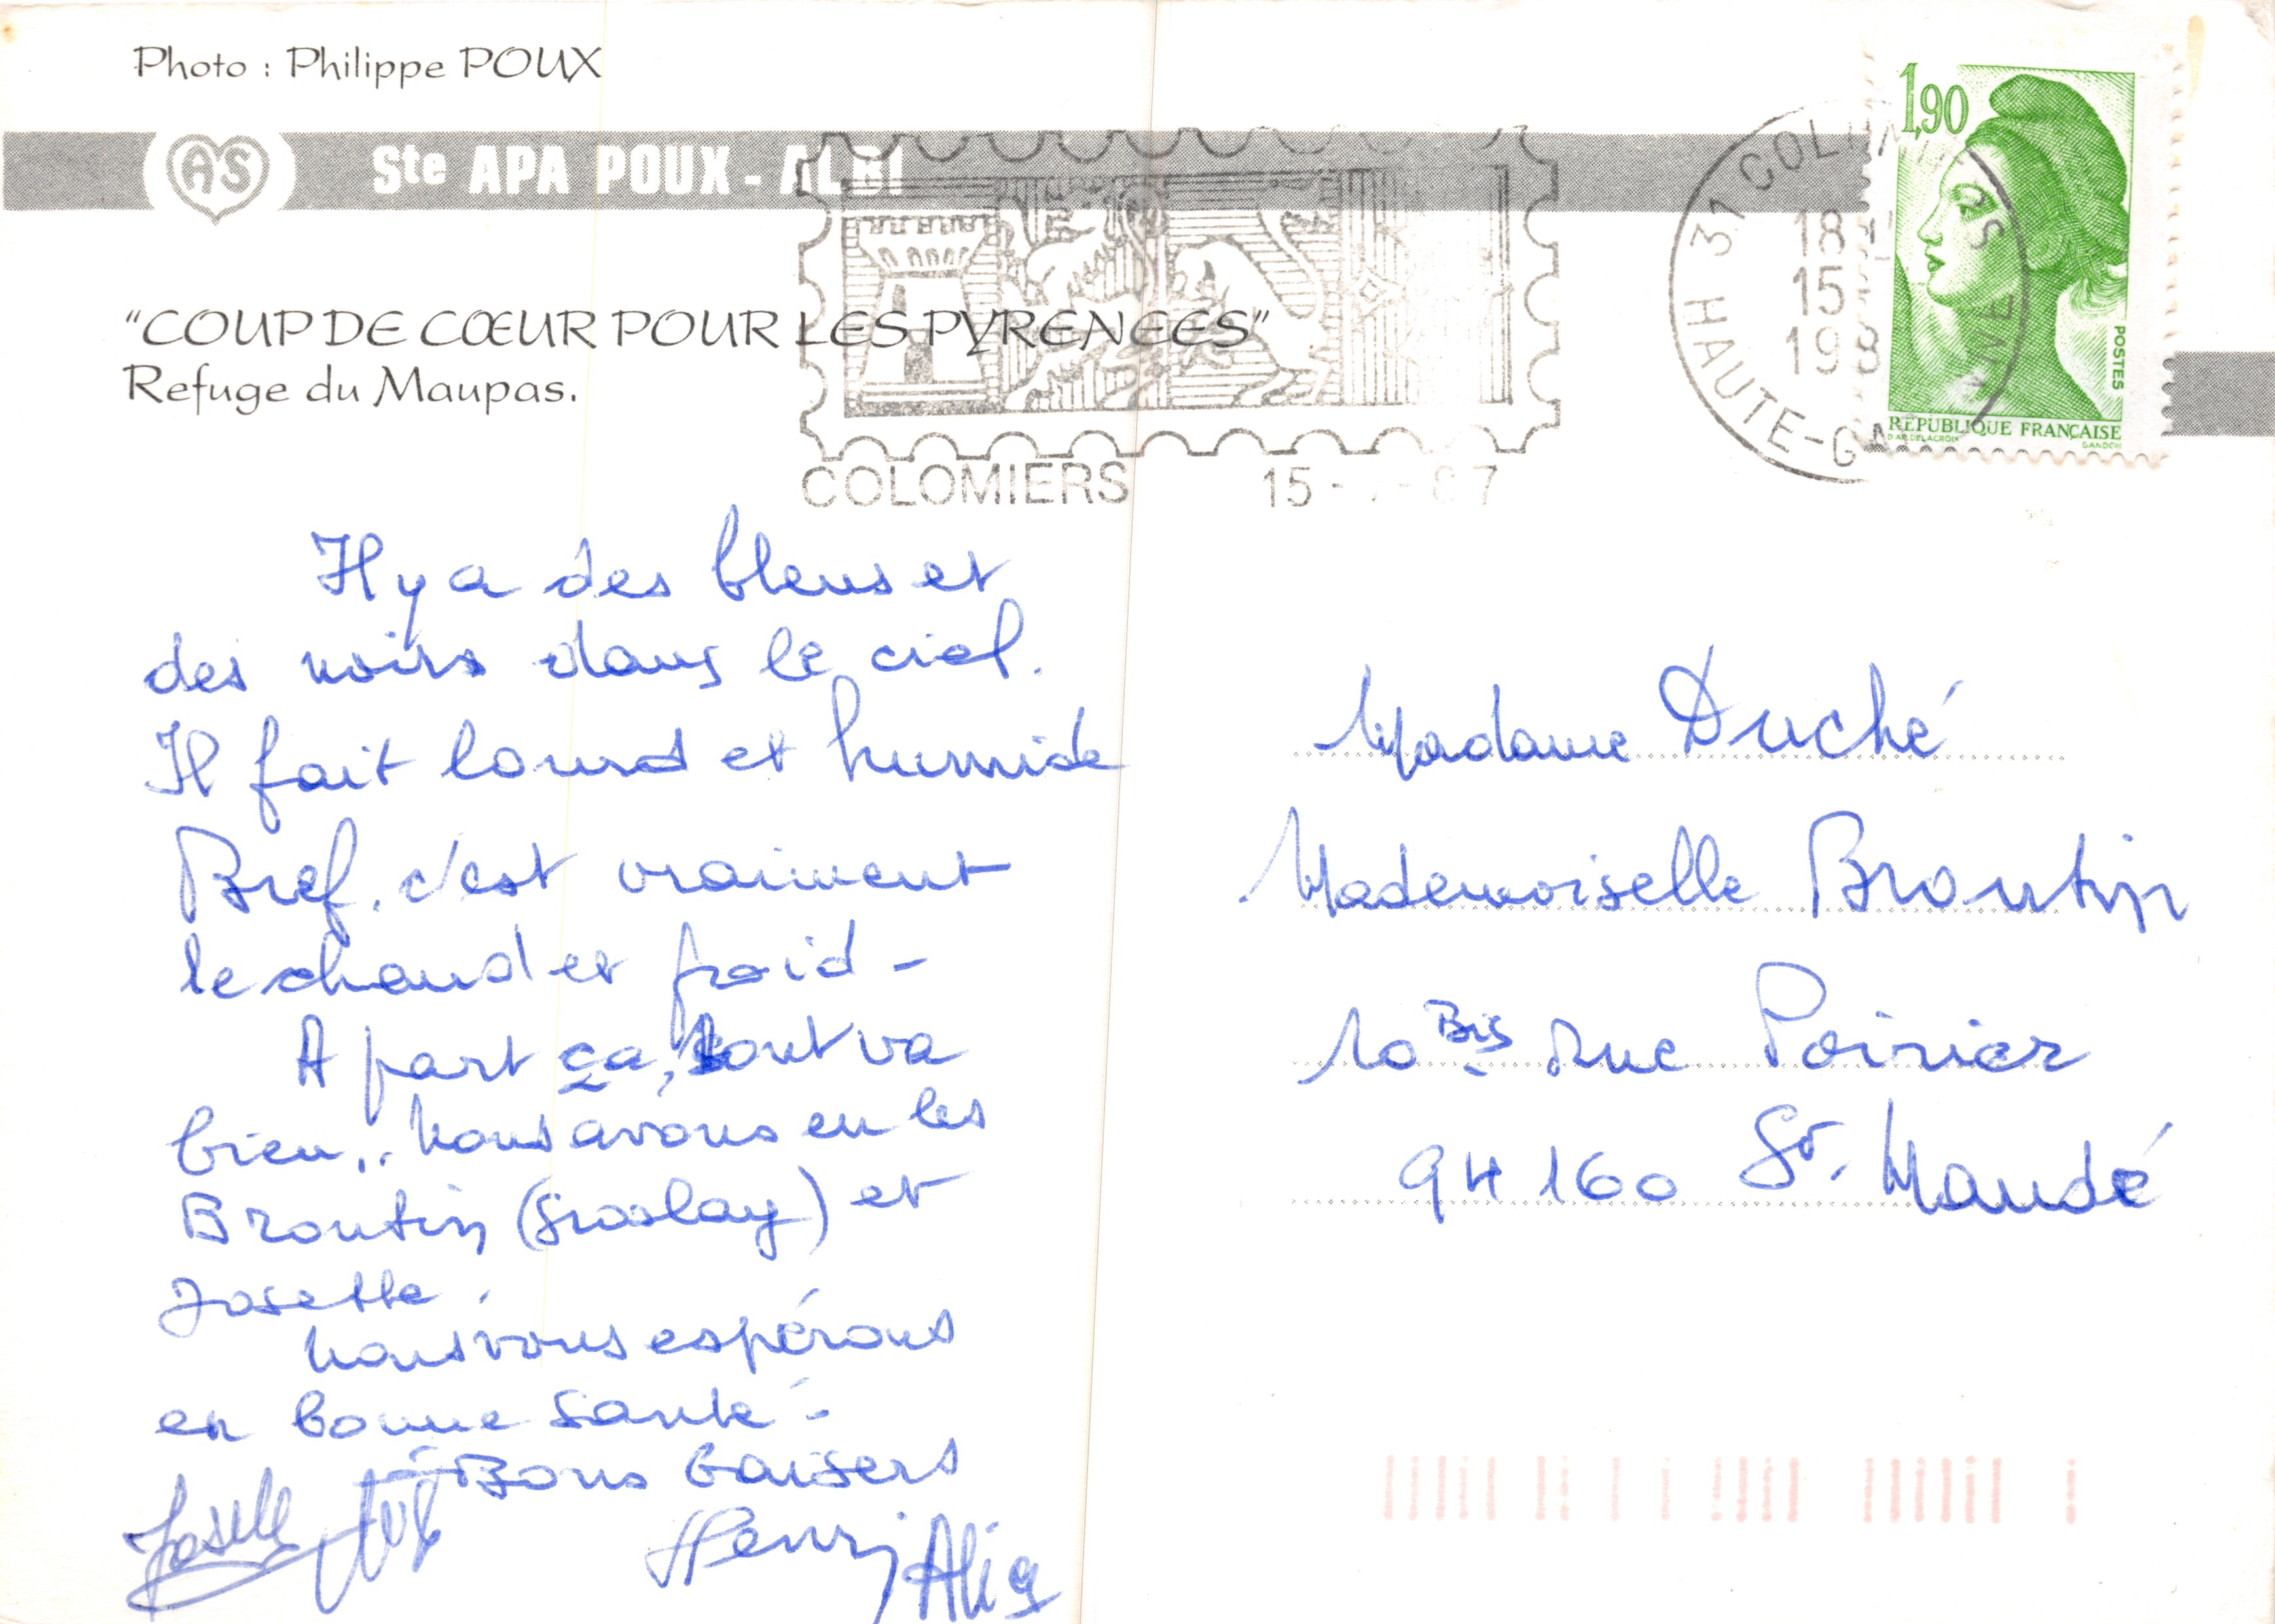 Photo : Philippe POUX
AS Ste APA POUX - ALBI
"COUP DE CŒUR POUR LES PYRENEES"
Refuge du Maupas.
1,90
POSTES
RÉPUBLIQUE FRANÇAISE
D'AP. DELACROIX GANDON
31 COLOMIERS
18
15
198
HAUTE-GA NE
COLOMIERS 15 - 7 - 87
Il y a des bleus et
des noirs dans le ciel.
Il fait lourd et humide
Bref. c'est vraiment
le chaud et froid -
A part ça, tout va
bien... Nous avons eu les
Broutin (Groslay) et
Josette.
Nous vous espérons
en bonne santé -
Bons baisers
Josette
Henri Alig
Madame Duché
Mademoiselle Broutin
10 Bis Rue Poirier
94160 St. Mandé